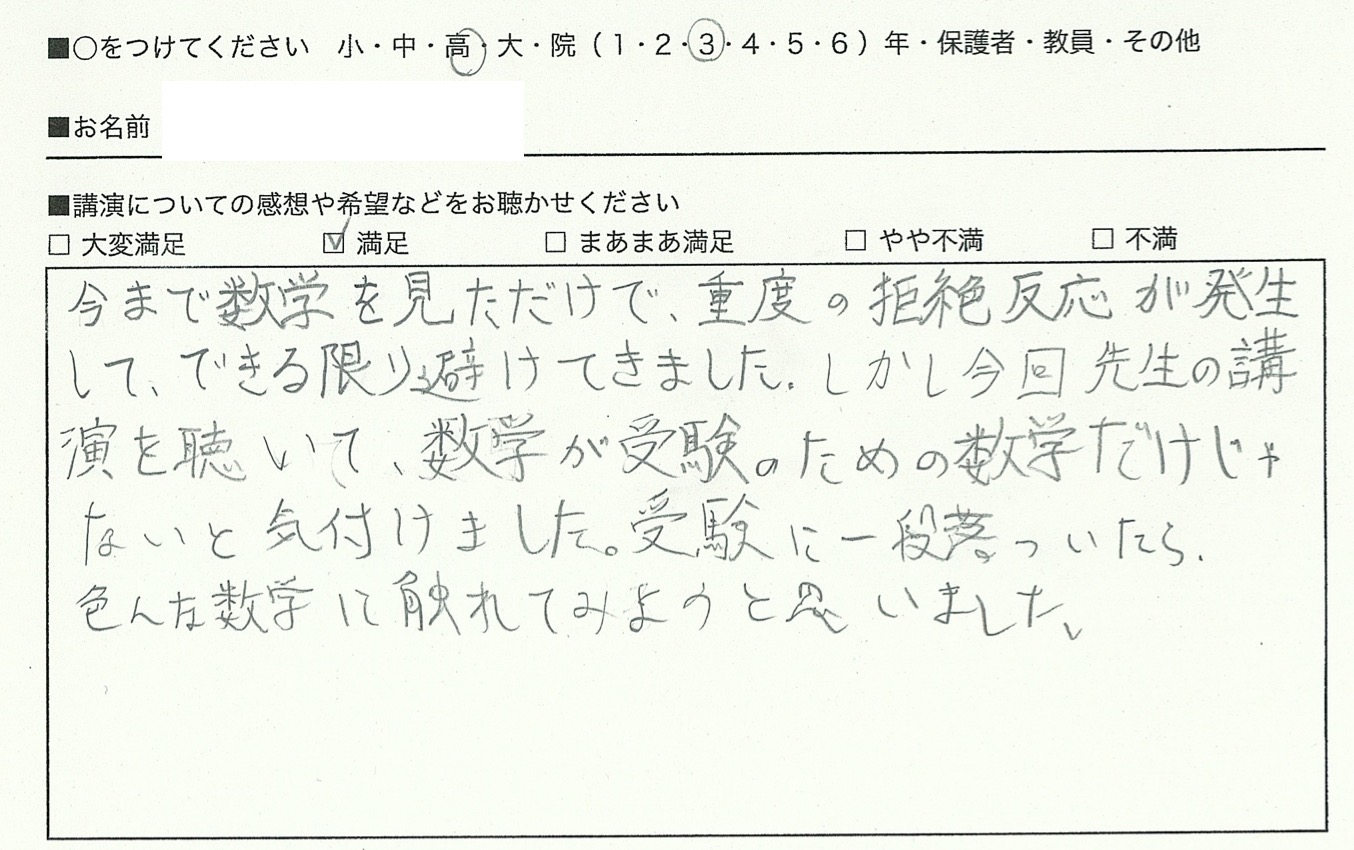 ■○をつけてください 小・中・高・大・院（1・2・3・4・5・6）年・保護者・教員・その他
■お名前
■講演についての感想や希望などをお聴かせください
□ 大変満足 ☑ 満足 □ まあまあ満足 □ やや不満 □ 不満
今まで数学を見ただけで、重度の拒絶反応が発生
して、できる限り避けてきました。しかし今回先生の講
演を聴いて、数学が受験のための数学だけじゃ
ないと気付けました。受験に一段落ついたら、
色んな数学に触れてみようと思いました、